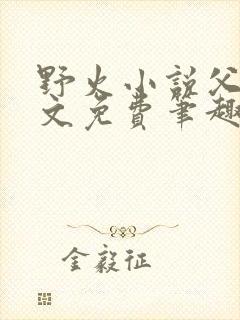 野火小说父
文免费笔趣
金毅征